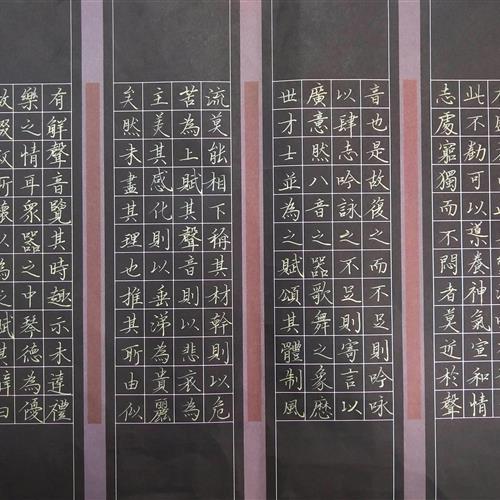 此不勸可以導養神氣宣和情
志處窮獨而不悶者莫近於聲
音也是故復之而不足則吟咏
以肆志吟詠之不足則寄言以
廣意然八音之器歌舞之象歷
世才士並為之賦頌其體制風
流莫能相下稱其材幹則以危
苦為上賦其聲音則以悲哀為
主美其感化則以垂涕為貴麗
矣然未盡其理也推其所由似
有觧聲音覽其時趣示未達禮
樂之情耳眾器之中琴德為優
故綴叙所懷以為之賦其辭曰